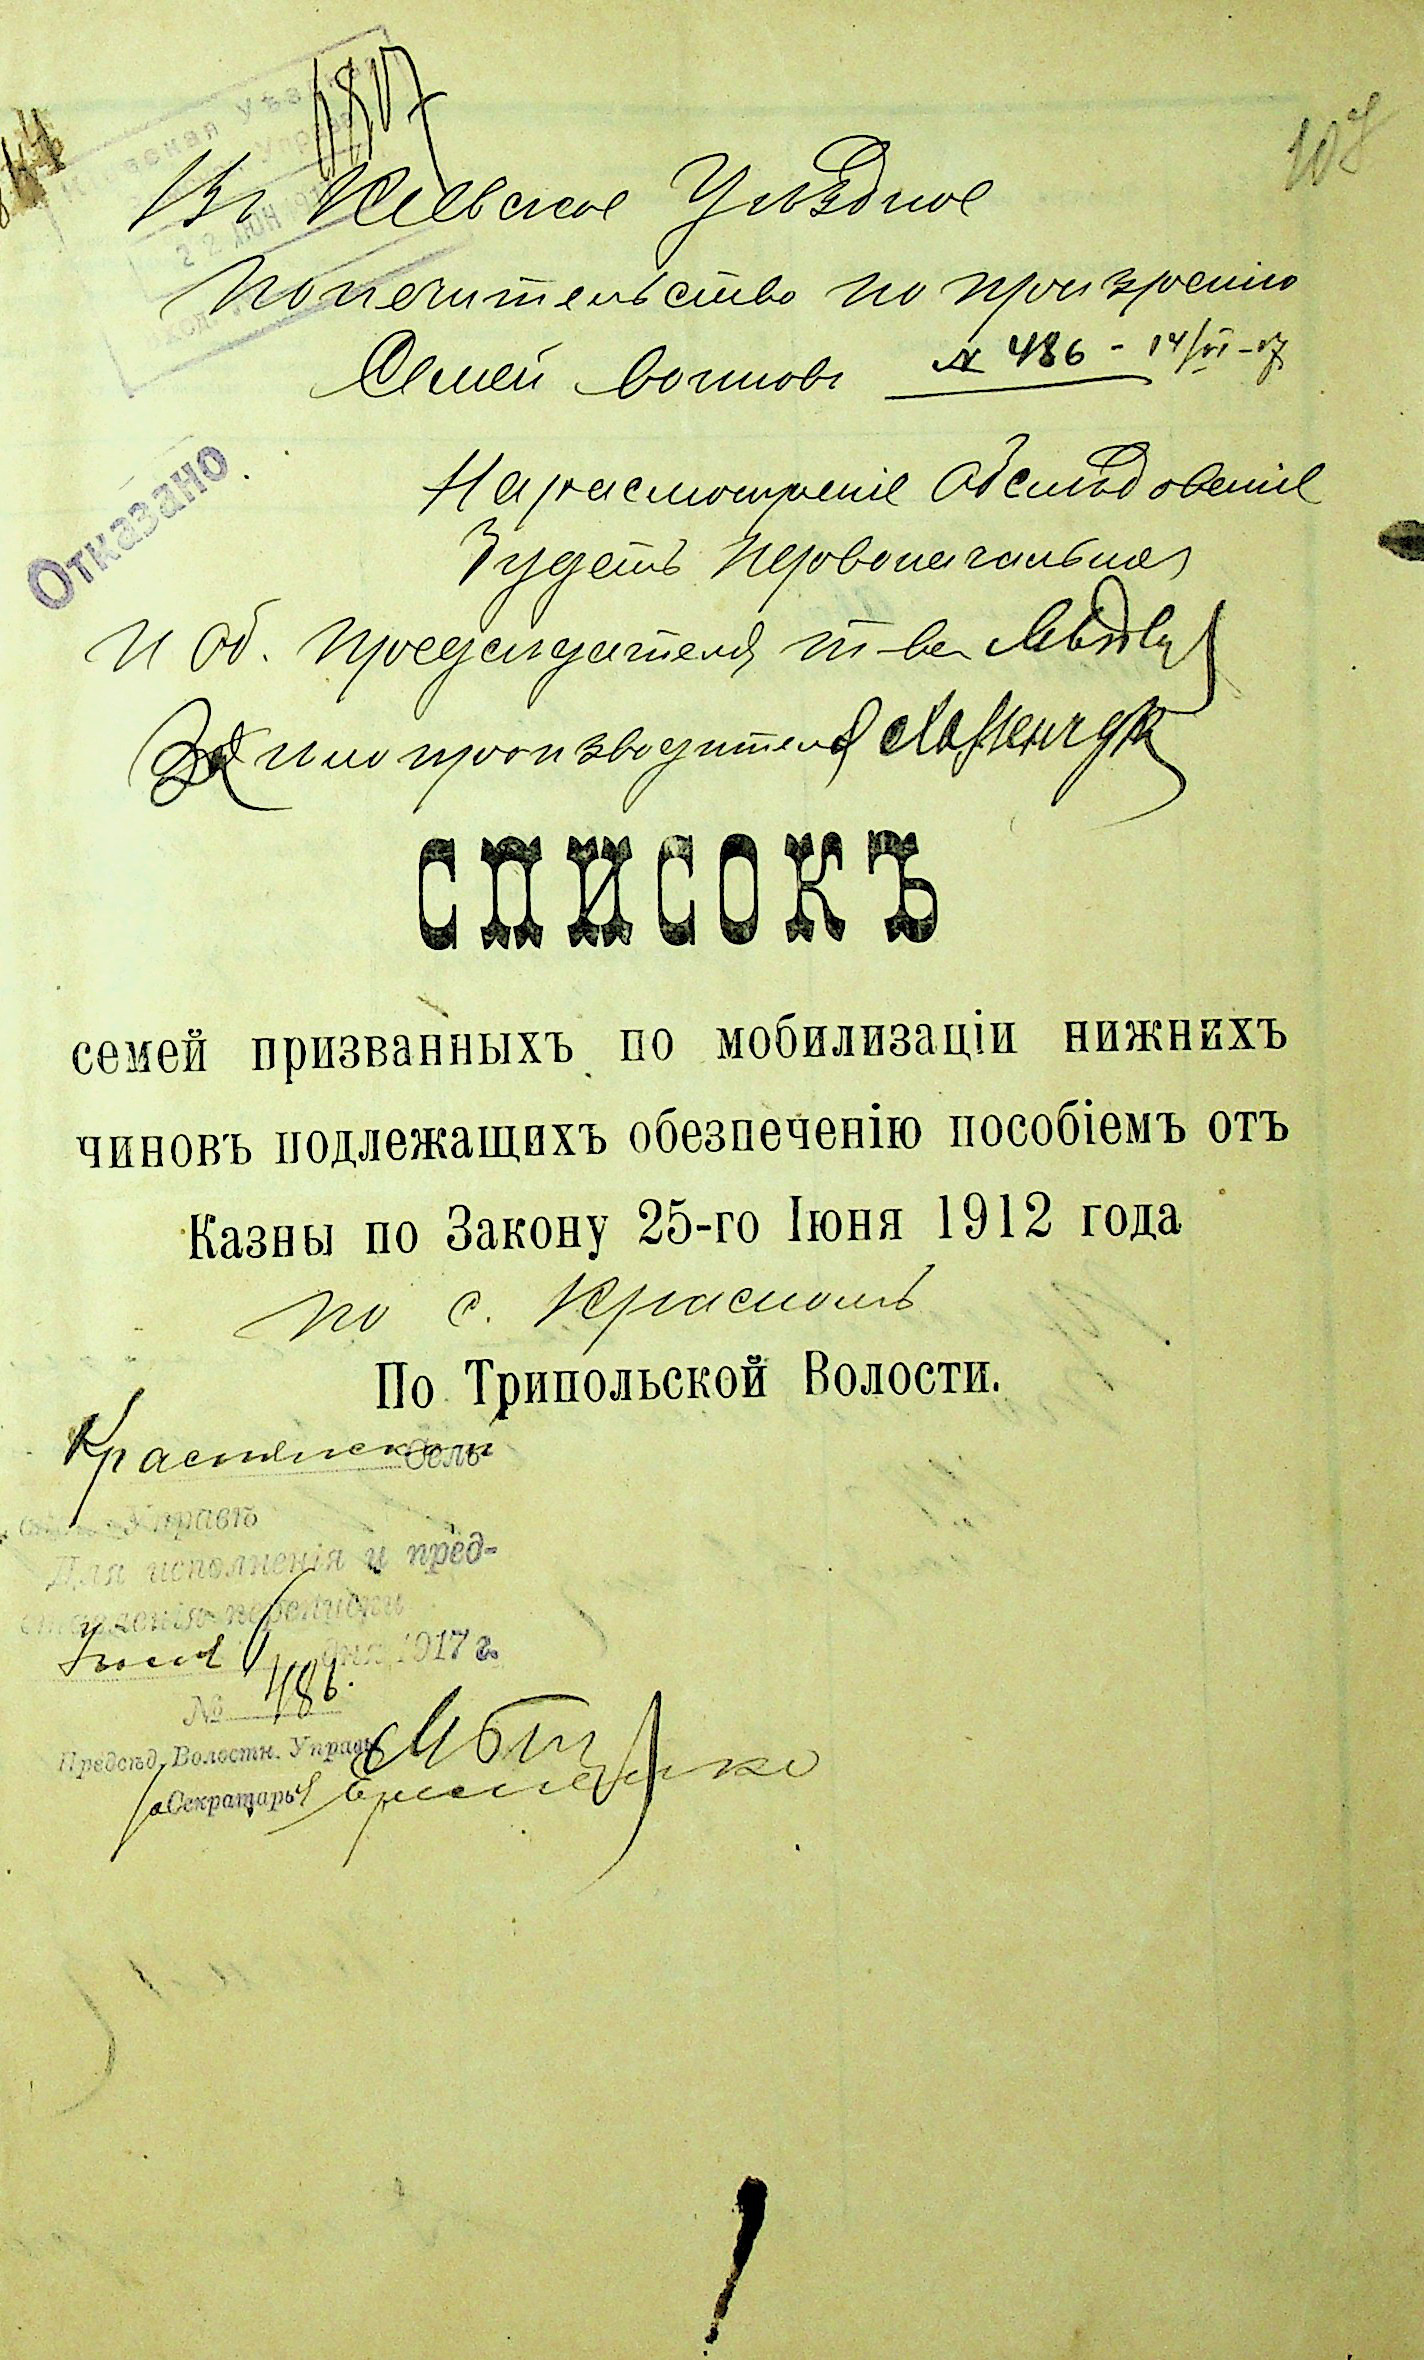 6807
107
Кіевская Уѣздн
Управа
22 ІЮН 191
Въ Кіевское Уѣздное
попечительство по призренію
Семей воиновъ № 486 - 14/VI - 17
Отказано
На расмотреніе Обслѣдованіе
будетъ первоначальное
И об. председателя
Делопроизводителя
СПИСОКЪ
семей призванныхъ по мобилизаціи нижнихъ
чиновъ подлежащихъ обезпеченію пособіемъ отъ
Казны по Закону 25-го Іюня 1912 года
по с. Красномъ
По Трипольской Волости.
Краснянской Сель
ской Управѣ
Для исполненія и пред-
ставленія переписки
Іюня дня 1917 г.
№ 486.
Предсѣд. Волостн. Управы
Секратарь Ермеленко